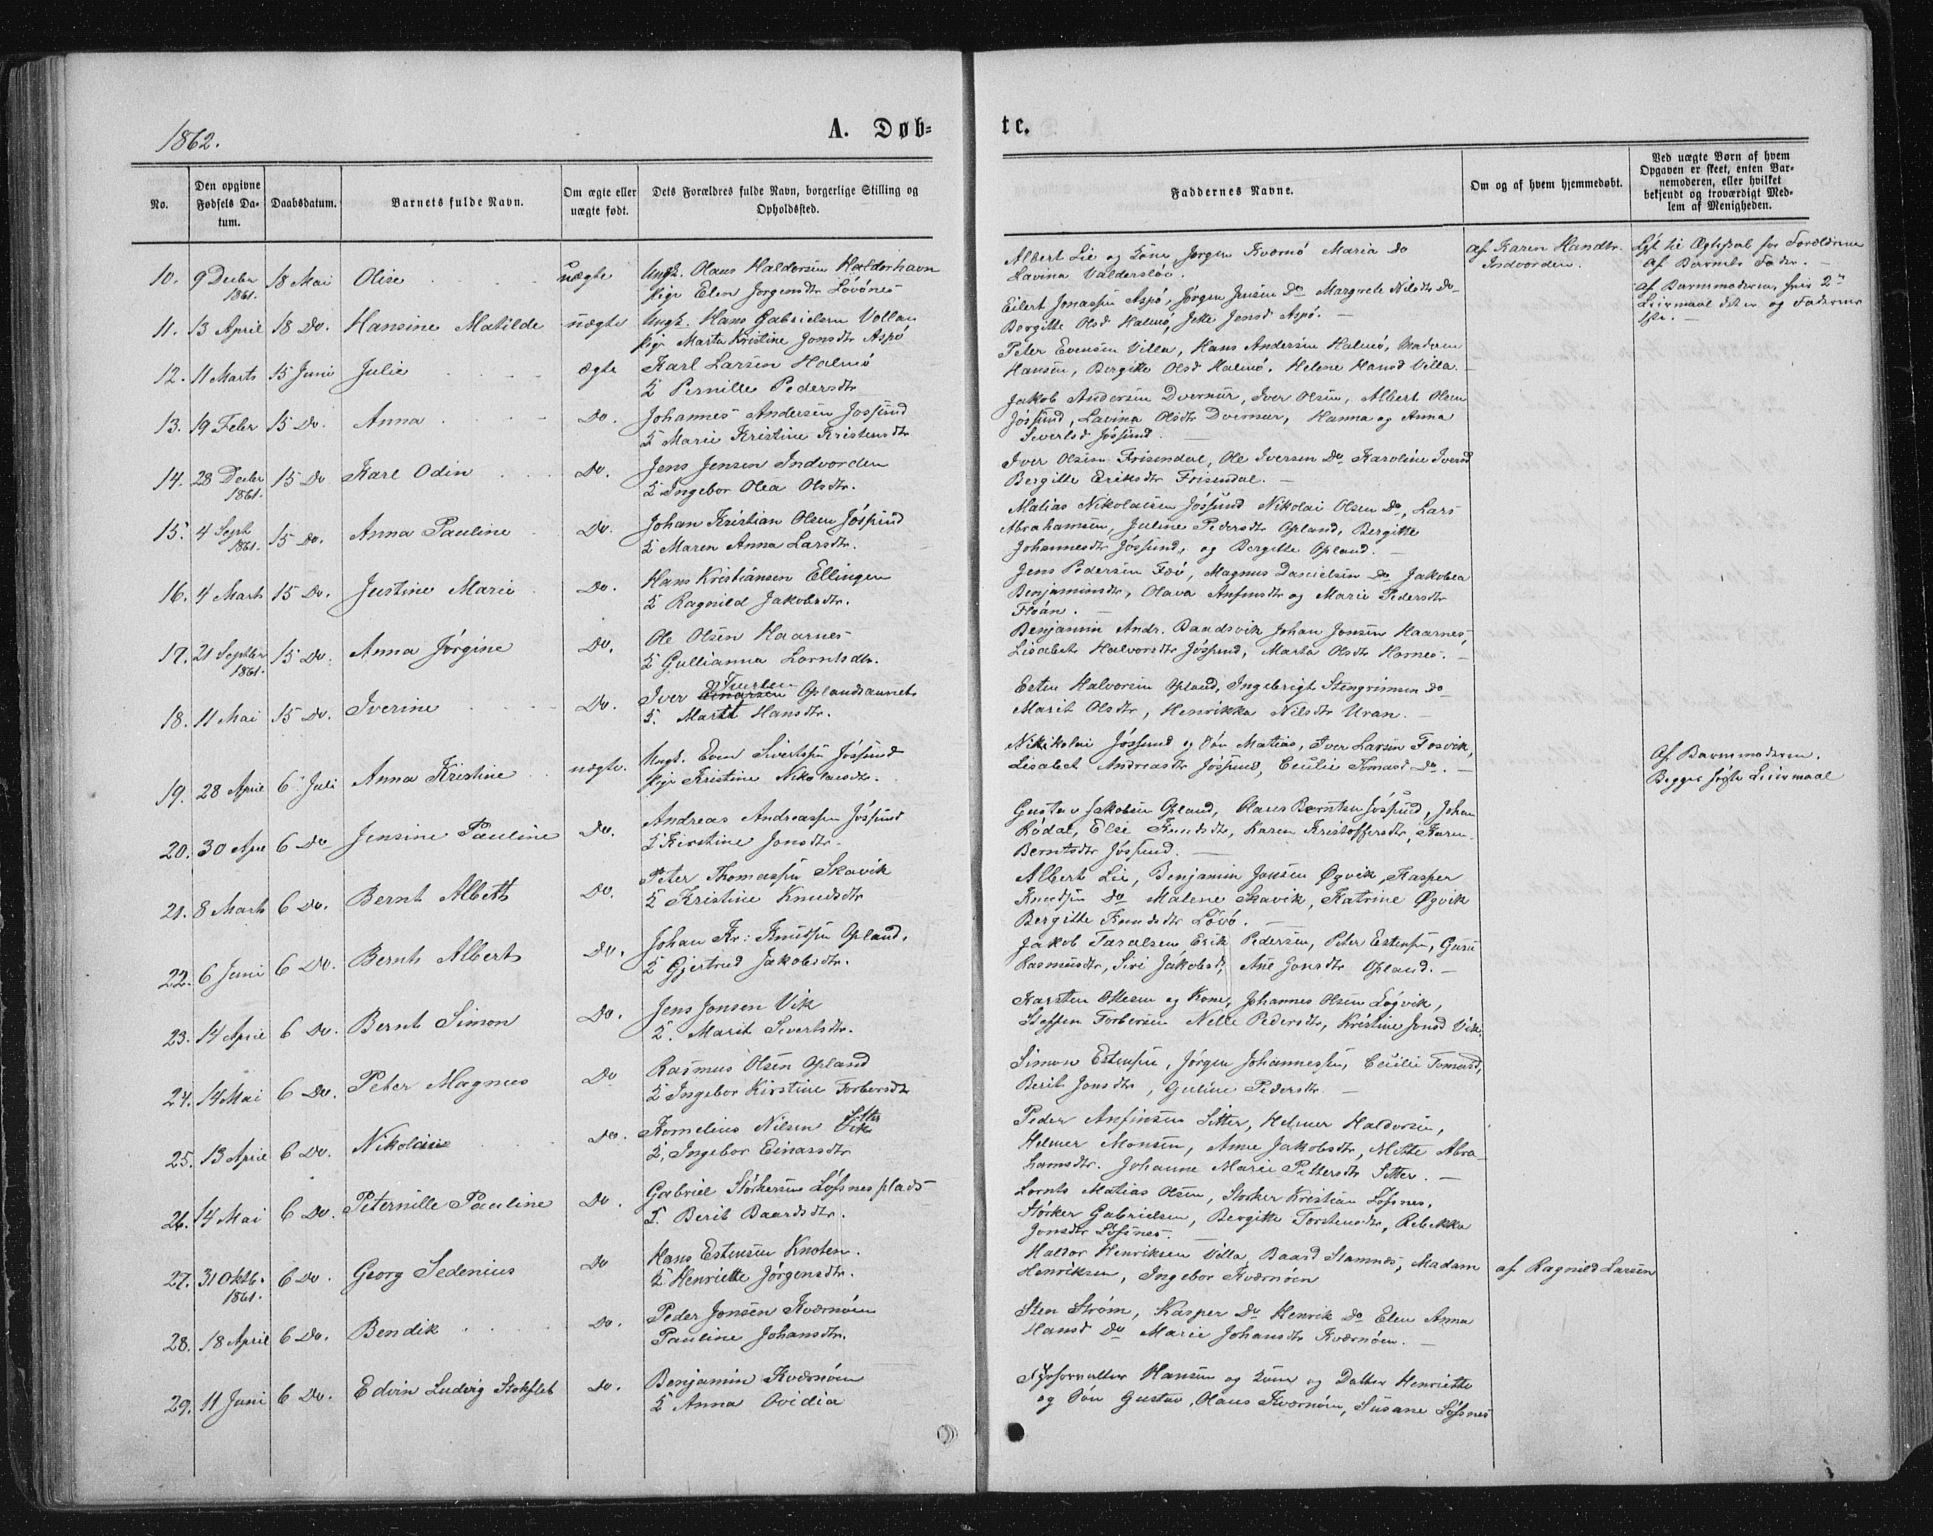 1862.
A. Døb-
te.
No.
Den opgivne Fødsels Da-tum.
Daabsdatum.
Barnets fulde Navn.
Om ægte eller uægte født.
Dets Forældres fulde Navn, borgerlige Stilling og Opholdssted.
Faddernes Navne.
Om og af hvem hjemmedøbt.
Ved uægte Børn af hvem Opgaven er skeet, enten Bar-nemoderen, eller hvilket bekjendt og troværdigt Med-lem af Menigheden.
10. 9 Decbr 1861. 18 Mai Olise uægte Ungk. Olaus Haldorsen Halderhavn
Pige Elen Jørgensdtr Lövönes
Albert Lie og Kone, Jørgen Kværnö Maria Do
Lavina Valdersløv.
af Karen Handtr. Indvorden.
Lyst til Ægteskab for Forældrene
Af Barnets Fader.
11. 13 April 18 Do. Hansine Matilde uægte Ungk. Hans Gabrielsen Vollan
Pige Marta Kristine Jonsdtr Aspö
Eilert Jonassen Aspö, Jørgen Jensen Do Margrete Nilsdtr Do
Bergitte Olsd Halmö, Jette Jensd Aspö.
Af Barnemoderen, hvis 2n
Leiermaal det er og Faderens
1ste.
12. 11 Marts 15 Juni Julie ægte Karl Larsen Halmö
K Pernille Pedersdtr
Peter Evensen Villa, Hans Andersen Halmö, Maren
Hansen, Bergitte Olsd Halmö. Helene Hansd Villa.
13. 19 Febr 15 Do. Anna Do. Johannes Andersen Jössund
K Marie Kristine Kristensdtr
Jakob Andersen Dvernur, Iver Olsen, Albert Olsen
Jössund, Lavina Olsdtr Dvernur, Hanna og Anna
Sivertsd Jössund.
14. 28 Decbr 1861. 15 Do Karl Odin Do. Jens Jensen Indvorden
K Ingebor Olea Olsdtr.
Iver Olsen Frisendal, Ole Iversen Do Karoline Iversd
Bergitte Eriksdtr Frisendal.
15. 4 Septr 1861. 15 Do. Anna Pauline Do. Johan Kristian Olsen Jössund
K Maren Anna Larsdtr.
Matias Nikolaisen Jössund Nikolai Olsen Do, Lars
Abrahamsen, Juline Pedersdtr Opland, Bergitte
Johannesdtr Jössund, og Bergitte Opland.
16. 4 Marts 15 Do. Justine Marie Do. Hans Kristiansen Ellingen
K Ragnild Jakobsdtr.
Jens Pedersen Faö, Magnus Danielsen Do Jakobea
Benjaminsdtr, Olava Anfinsdtr og Marie Pedersdtr
Floän.
17. 21 Septbr 1861. 15 Do. Anna Jörgine Do. Ole Olsen Haarnes
K Gullianna Lorntsdtr.
Benjamin Andr. Bandsvik Johan Jonsen Haarnes,
Lisabet Halvorsdtr Jössund, Marta Olsdtr Hornes.
18. 11 Mai 15 Do. Iverine Do. Iver Oplandsaunets
K. Marit Hansdtr.
Esten Halvorsen Opland, Ingebrigt Stengrimsen Do
Marit Olsdtr, Henrikka Nilsdtr Uran.
19. 28 April 6 Juli Anna Kristine uægte. Ungk. Even Sivertsen Jössund
Pige Kristine Nikolaisdtr.
Nikikolai Jössund og Sön Matias, Iver Larsen Fosvik,
Lisabet Andreasdtr Jössund, Cecilie Tomasd Do.
Af Barnemoderen.
Begges første Leiermaal
20. 30 Apr 6 Do Jensine Pauline Do. Andreas Andreassen Jössund
K Kirstine Jonsdtr.
Gustav Jakobsen Opland, Olaus Berntsen Jössund, Johan
Rödal, Else Knudsdtr, Karen Kristoffersdtr, Karen
Berntsdtr Jössund.
21. 8 Marts 6 Do. Bernt Albert Do. Peter Thomassen Skavik
K Kristine Knudsdtr
Albert Lie, Benjamin Jonsen Øgvik, Kasper
Knudsen Do Malene Skavik, Katrine Øgvik
Bergitte Knudsdtr Lövö.
22. 6 Juni 6 Do. Bernt Albert Do. Johan Kr: Knudsen Opland.
K Gjertrud Jakobsdtr.
Jakob Taralsen Erik Pedersen, Peter Estensen, Guru
Rasmusdtr, Siri Jakobsd, Ane Jonsdtr Opland.
23. 14 April 6 Do. Bernt Simon Do. Jens Jonsen Vik
K. Marit Sivertsdtr.
Karsten Ottesen og Kone, Johannes Olsen Løgvik,
Steffen Torbersen Nelle Pedersdtr, Kristine Jonsd Vik
24. 14 Mai 6 Do. Peter Magnus Do Rasmus Olsen Opland
K Ingebor Kirstine Torbersdtr
Simon Estensen, Jörgen Johannessen, Cecilie Tomasd,
Berit Jonsdtr, Guline Pedersdtr.
25. 13 April 6 Do. Nikoline Do. Kornelius Nilsen Sitter
K. Ingebor Einarsdtr
Peder Anfinsen Sitter, Helmer Haldorsen,
Helmer Monsen, Anne Jakobsdtr, Mette Abra-
hamsdtr. Johanne Marie Pettersdtr Sitter.
26. 14 Mai 6 Do. Peternille Pauline Do. Gabriel Störkersen Löfsnes plads
K. Berit Baardsdtr.
Lornts Matias Olsen, Störker Kristian Löfsnes,
Störker Gabrielsen, Bergitte Torstensdtr, Rebekka
Jonsdtr Löfsnes.
27. 31 Oktb. 1861. 6 Do. Georg Sedenius Do Hans Estensen Knoten.
K Henriette Jörgensdtr.
Haldor Henriksen Villa, Baard Stamnes, Madam
Henriksen, Ingebor Kværnöen
af Ragnild Larsen
28. 18 April 6 Do. Bendik Do. Peder Jonsen Kværnöen
Pauline Johansdtr.
Sten Ström, Kasper Do Henrik Do Elen Anna
Hansd Do Marie Johansdtr Kværnöen.
29. 11 Juni 6 Do. Edvin Ludvig Stokflet Do. Benjamin Kværnöen
K Anna Ovidia
Hansen og Kone og Datter Henriette
og Sön Gustav, Olaus Kværnöen, Susane Löfsnes